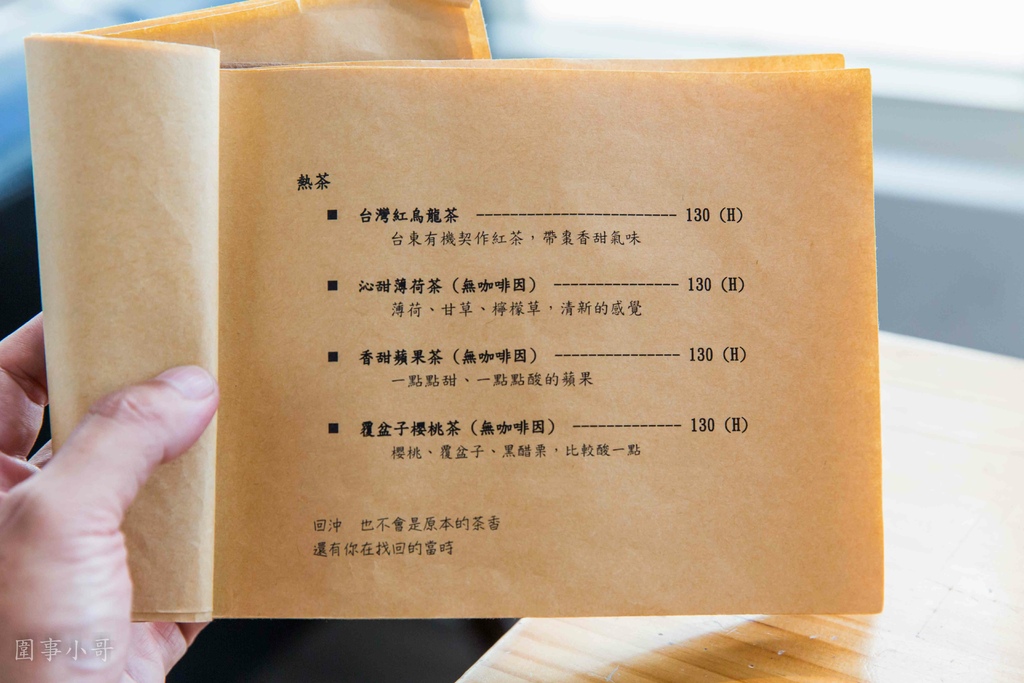 熱茶
■ 台灣紅烏龍茶 ------------------------ 130 (H)
台東有機契作紅茶，帶棗香甜氣味
■ 沁甜薄荷茶（無咖啡因） --------------- 130 (H)
薄荷、甘草、檸檬草，清新的感覺
■ 香甜蘋果茶（無咖啡因） --------------- 130 (H)
一點點甜、一點點酸的蘋果
■ 覆盆子櫻桃茶（無咖啡因） ------------- 130 (H)
櫻桃、覆盆子、黑醋栗，比較酸一點
回沖　也不會是原本的茶香
還有你在找回的當時
圍事小哥